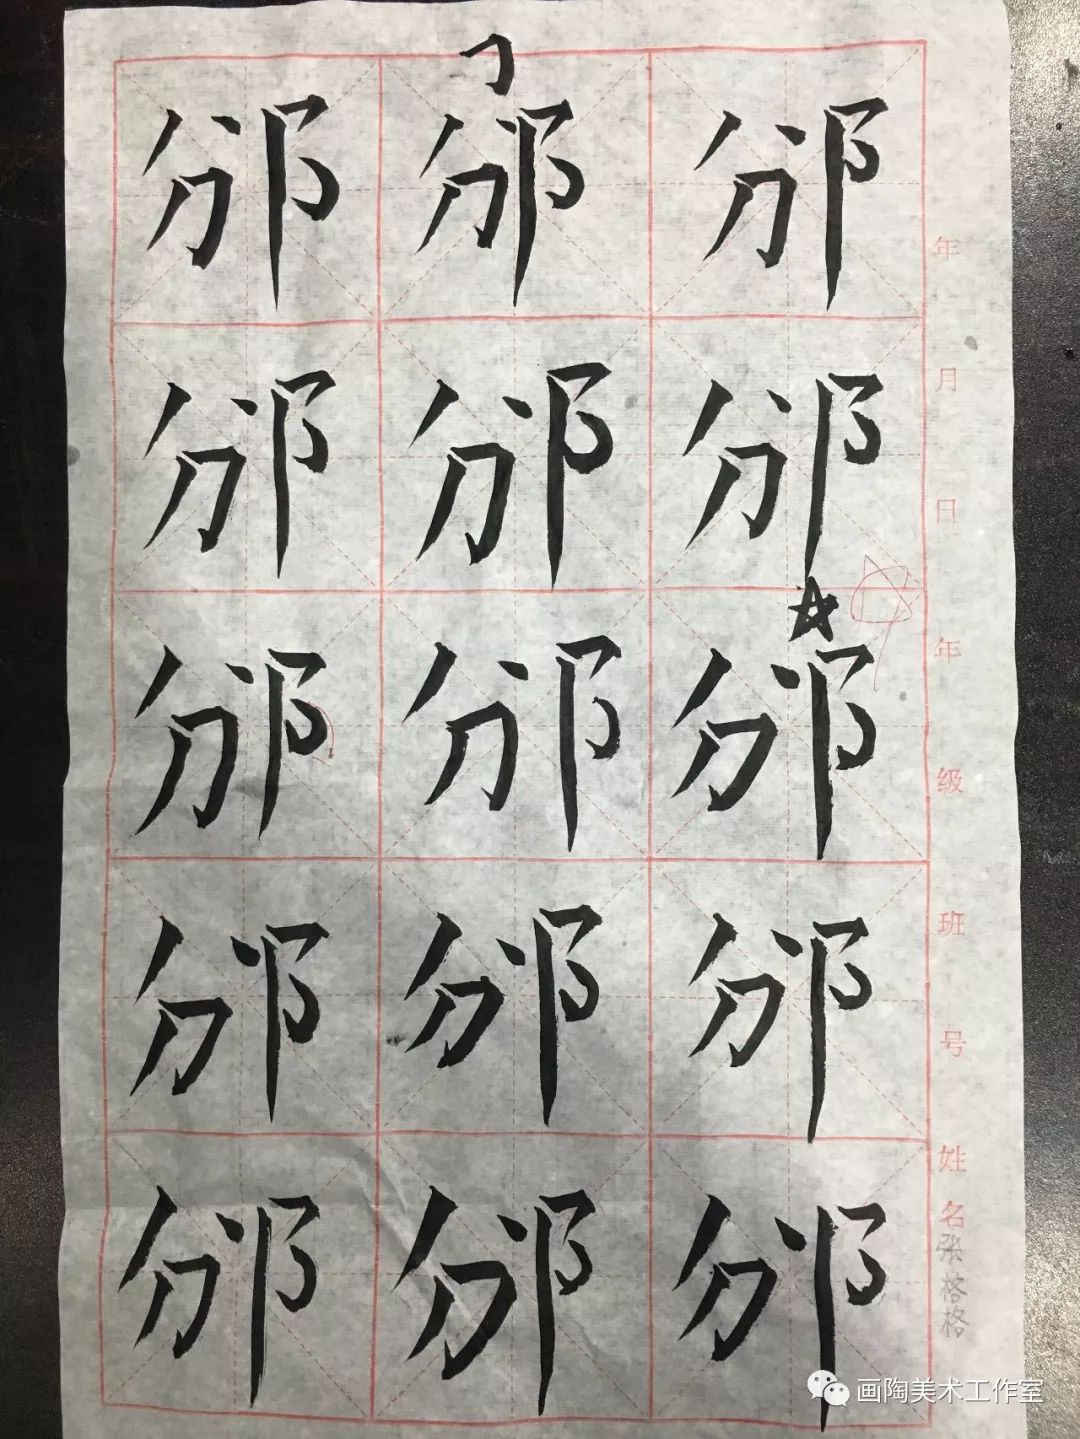 邠邠邠
邠邠邠
邠邠邠
邠邠邠
邠邠邠
年
月
日
年
级
班
号
姓
名
张格格
画陶美术工作室